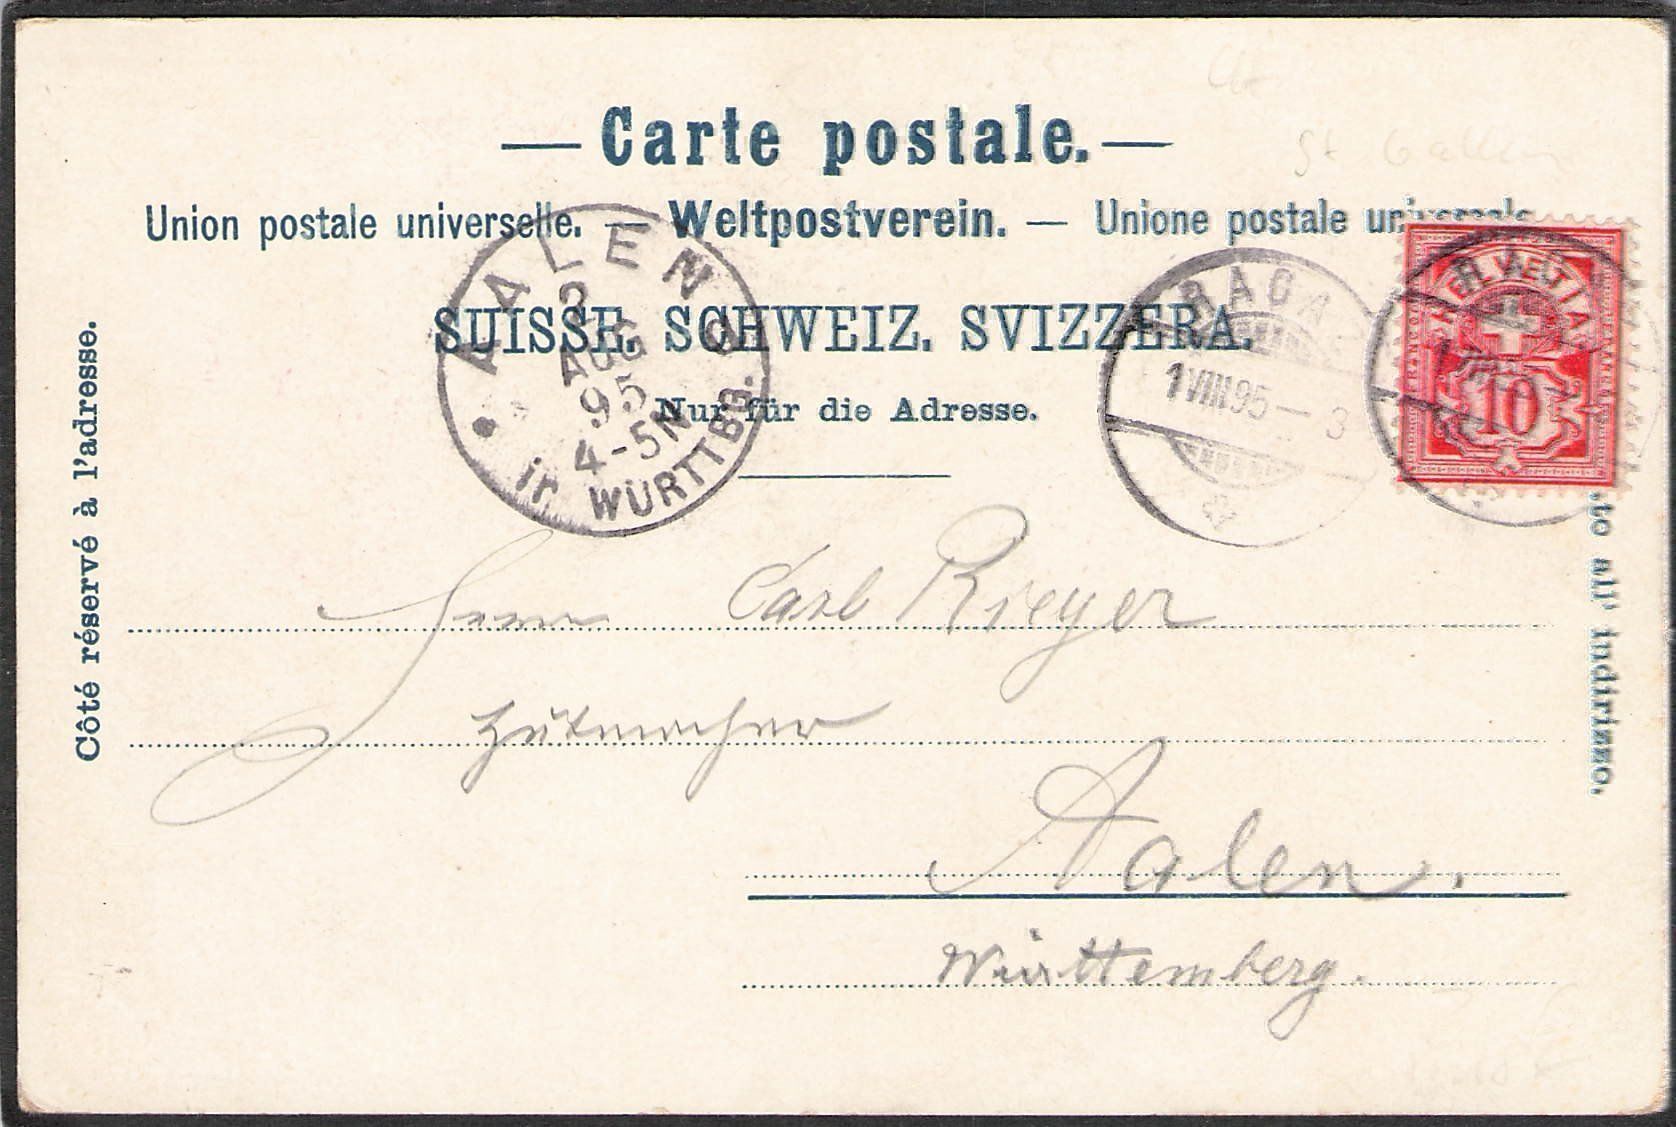 St Gallen
— Carte postale. —
Union postale universelle. — Weltpostverein. — Unione postale universale
SUISSE. SCHWEIZ. SVIZZERA.
Nur für die Adresse.
Côté réservé à l'adresse.
to all' indirizzo.
AALEN
2
AUG
95
4-5N
in WÜRTTBG.
RAGA
1 VIII 95 – 3
HELVETIA
10
Herrn Carl Rieger
Hutmacher
Aalen.
Württemberg.